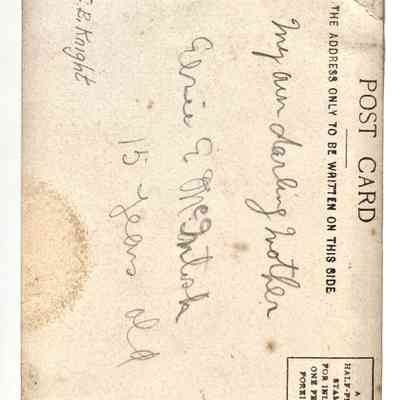 POST CARD
THE ADDRESS ONLY TO BE WRITTEN ON THIS SIDE
A
HALF-P
STA
FOR INL
ONE PE
FOREI
My own darling Mother
Elsie E McIntosh
15 years old
E. Knight